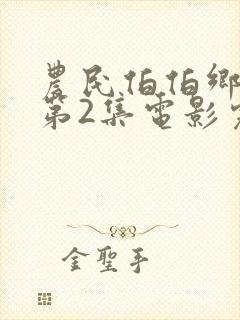 農民伯伯鄉
第2集電影
金聖手